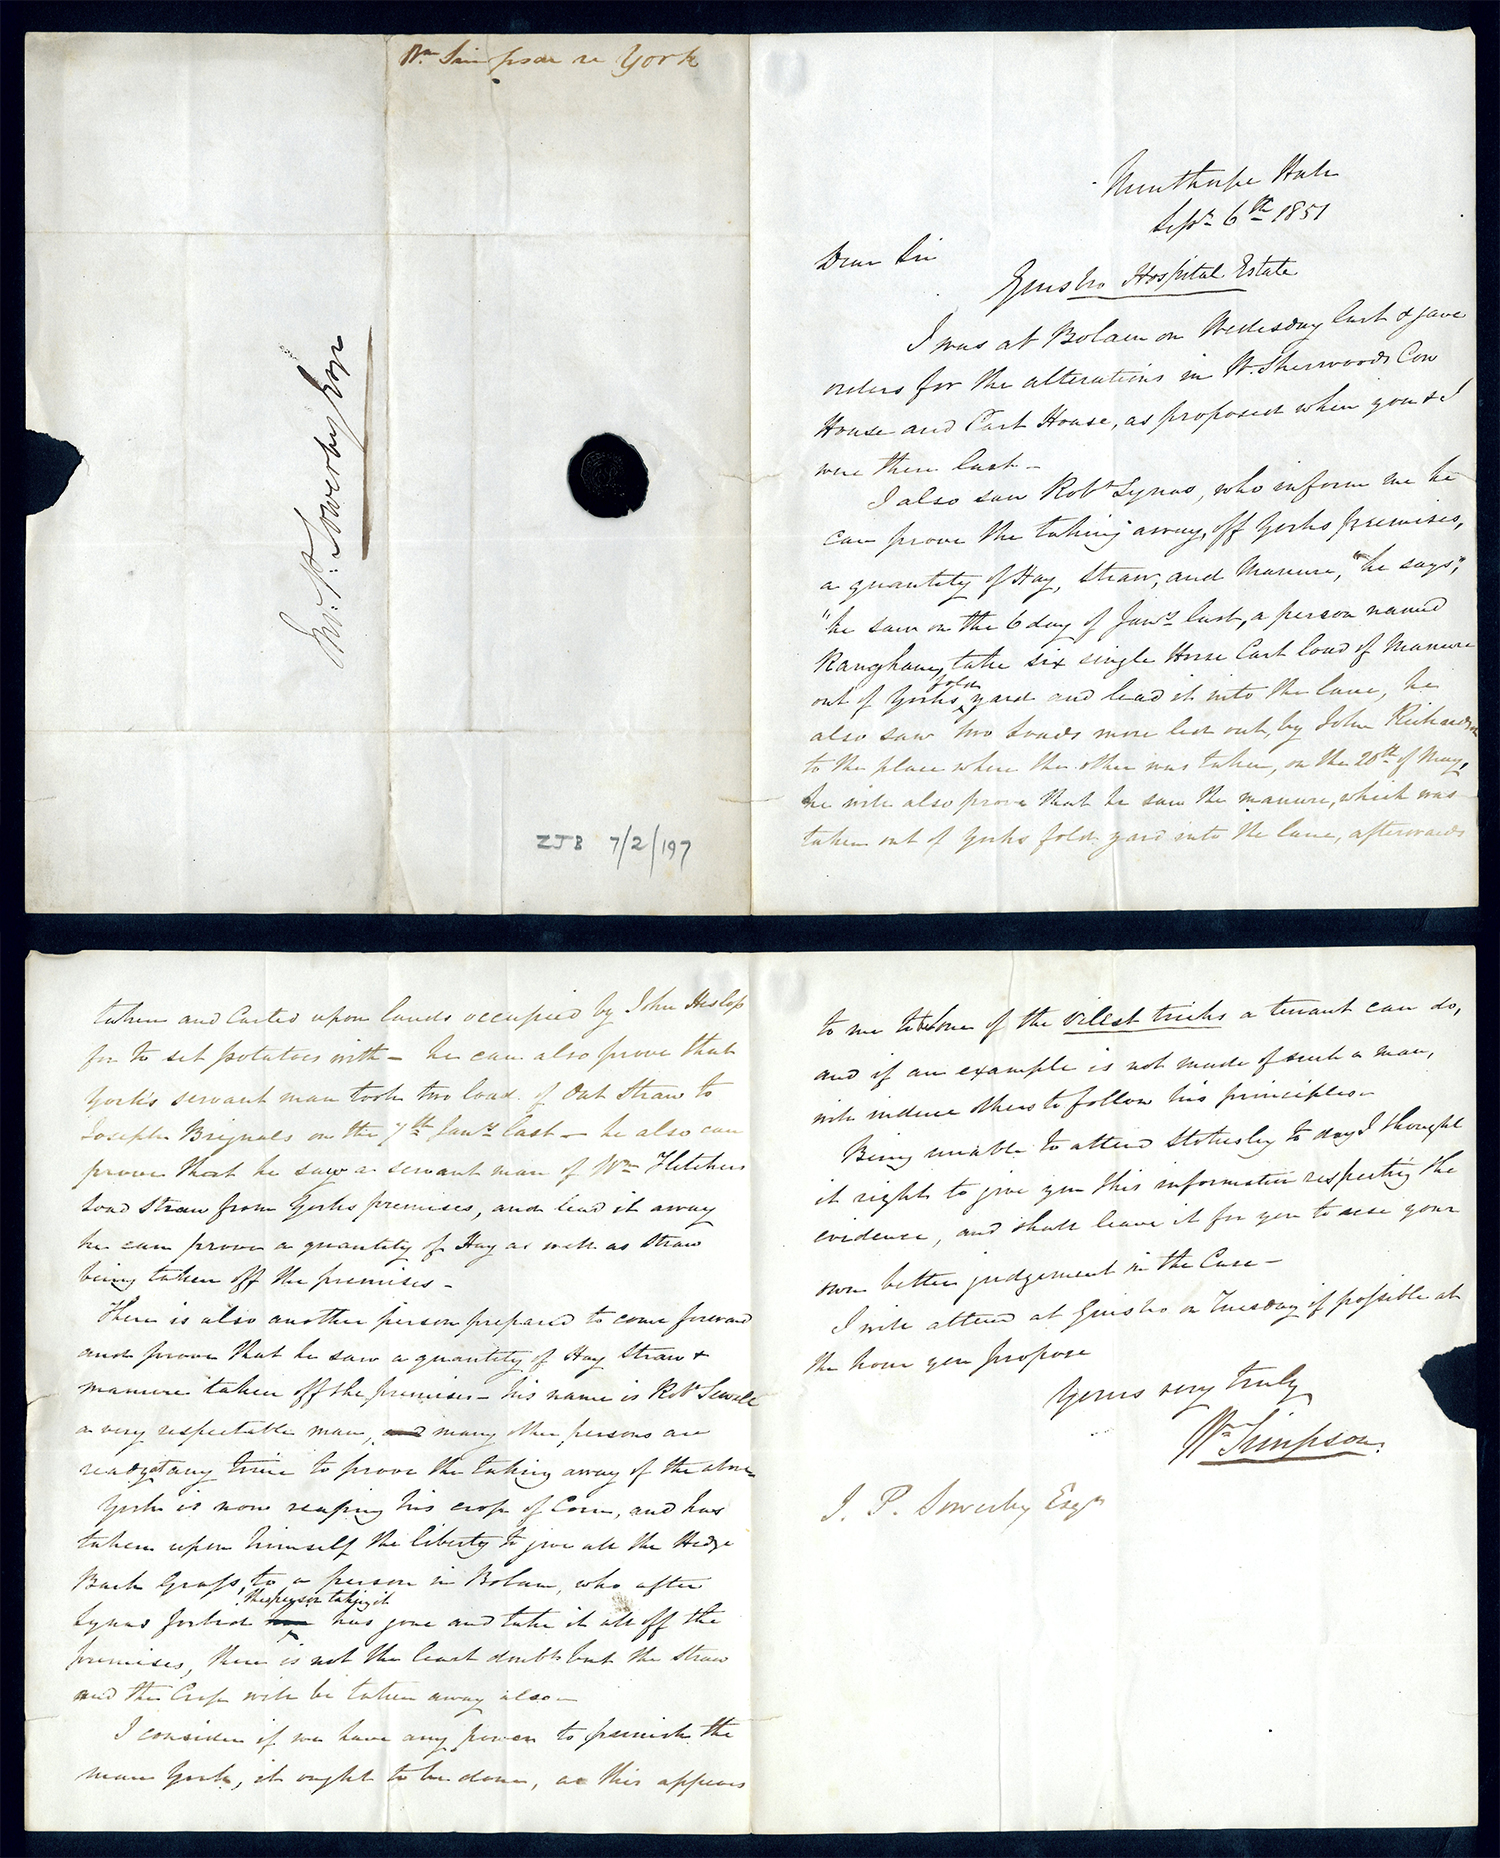 Wm Simpson re York
Jno. P. Sowerby Esqr
ZJB 7/2/197
Nunthorpe Hall
Septr 6th 1851
Dear Sir
Guisbro Hospital Estate
I was at Bolam on Wedesday last & gave
orders for the alterations in W. Sherwoods Cow
House and Cart House, as proposed when you & I
were there last -
I also saw Robt Lynas, who inform me he
can prove the taking away, off Yorks premises,
a quantity of Hay, Straw, and Manure, "he says",
"he saw on the 6 day of Jany last, a person named
Rangham, take six single Horse Cart load of Manure
out of Yorks fold yard and lead it into the lane, he
also saw two Loads more led out, by John Richardson
to the place where the other was taken, on the 20th of May,
he will also prove that he saw the manure, which was
taken out of Yorks fold yard into the lane, afterwards
taken and Carted upon lands occupied by John Heslop
for to set potatoes with - he can also prove that
York's servant man took two load of Oat Straw to
Joseph Brignals on the 7th Jany last - he also can
prove that he saw a servant man of Wm Fletchers
load Straw from Yorks premises, and lead it away
he can prove a quantity of Hay as well as Straw
being taken off the premises -
There is also another person prepared to come forward
and prove that he saw a quantity of Hay Straw &
manure taken off the premises - his name is Robt Sewell
a very respectable man, and many other persons are
ready at any time to prove the taking away of the above
York is now reaping his crop of Corn, and has
taken upon himself the liberty to give all the Hedge
Back Grass, to a person in Bolam, who after
Lynas forbod the person taking it has gone and take it all off the
premises, there is not the least doubt but the Straw
and the Crop will be taken away also -
I consider if we have any power to punish the
man York, it ought to be done, as this appears
to me to be one of the vilest tricks a tenant can do,
and if an example is not made of such a man,
will induce others to follow his principles -
Being unable to attend Stokesley to day I thought
it right to give you this information respecting the
evidence, and shall leave it for you to use your
own better judgement in the Case -
I will attend at Guisbro on Tuesday if possible at
the hour you propose
Yours very truly
Wm Simpson.
J. P. Sowerby Esqr